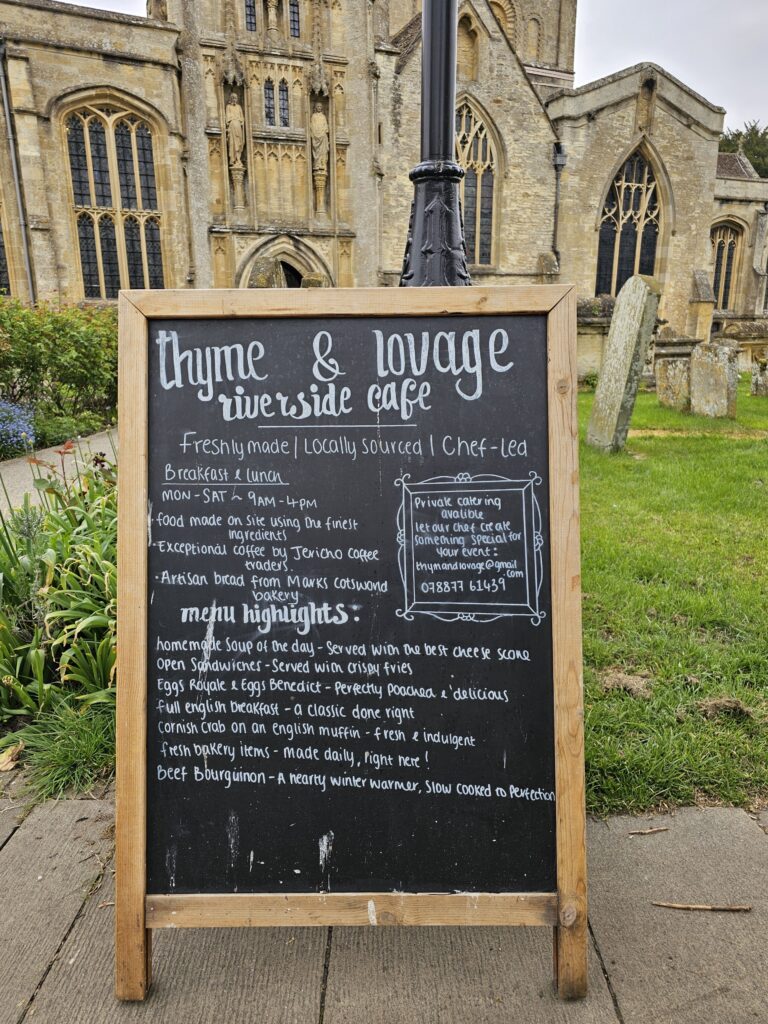 thyme & lovage
riverside cafe
Freshly made | Locally sourced | Chef-Led
Breakfast & Lunch
MON-SAT - 9AM-4PM
· food made on site using the finest
ingredients
· Exceptional coffee by Jericho coffee
traders.
· Artisan bread from Marks cotswold
bakery
Private catering
avalible
let our chef create
something special for
your event:
thymandlovage@gmail
.com
078877 61439
menu highlights:
homemade soup of the day - Served with the best cheese scone
Open Sandwiches - Served with crispy fries
Eggs Royale & Eggs Benedict - Perfectly poached & delicious
full english breakfast - a classic done right
Cornish Crab on an english muffin - fresh & indulgent
fresh bakery items - made daily, right here!
Beef Bourguinon - A hearty winter warmer, slow cooked to Perfection